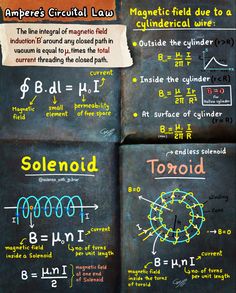 Ampere's Circuital Law
The line integral of magnetic field
induction B around any closed path in
vacuum is equal to μ₀ times the total
current threading the closed path.
∮ B.dl = μ₀I
current
Magnetic
field
small
element
permeability
of free space
Magnetic field due to a
cylinderical wire:
• Outside the cylinder (r>R)
B = μ₀ I
2π r
• Inside the cylinder (r<R)
B = μ₀ I r
2π R²
B=0
for
Hollow cylinder
• At surface of cylinder
(r=R)
B = μ₀ I
2π R
Solenoid
I
I
current
B = μ₀nI
magnetic field
inside a Solenoid
no. of turns
per unit length
B = μ₀nI
2
magnetic field
at one end
of Solenoid
endless solenoid
Toroid
winding
core
I
I
current
B = μ₀nI
magnetic field
inside the turns
of toroid
no. of turns per
unit length